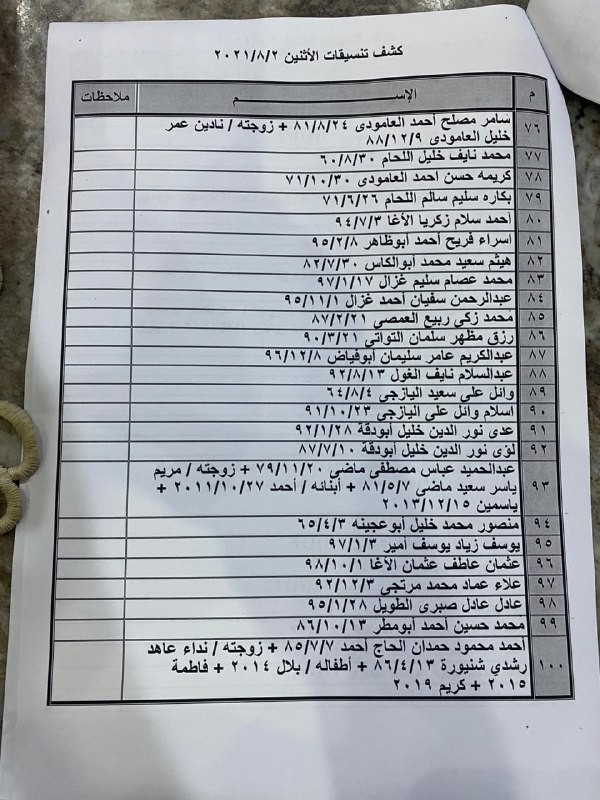 كشف تنسيقات الأثنين ٢٠٢١/٨/٢
م الإســـــــــم ملاحظات
٧٦ سامر مصلح احمد العامودى ٨١/٨/٢٤ + زوجته / نادين عمر
خليل العامودى ٨٨/١٢/٩
٧٧ محمد نايف خليل اللحام ٦٠/٨/٣٠
٧٨ كريمه حسن احمد العامودى ٧١/١٠/٣٠
٧٩ بكاره سليم سالم اللحام ٧١/٦/٢٦
٨٠ احمد سلام زكريا الأغا ٩٤/٧/٣
٨١ اسراء فريح أحمد أبوظاهر ٩٥/٢/٨
٨٢ هيثم سعيد محمد ابوالكاس ٨٢/٧/٣٠
٨٣ محمد عصام سليم غزال ٩٧/١/١٧
٨٤ عبدالرحمن سفيان أحمد غزال ٩٥/١١/١
٨٥ محمد زكى ربيع العمصي ٨٧/٢/٢١
٨٦ رزق مظهر سلمان التواتي ٩٠/٣/٢١
٨٧ عبدالكريم عامر سليمان أبوفياض ٩٦/١٢/٨
٨٨ عبدالسلام نايف الغول ٩٢/٨/١٣
٨٩ وائل على سعيد اليازجي ٦٤/٨/٤
٩٠ اسلام وائل على اليازجي ٩١/١٠/٢٣
٩١ عدى نور الدين خليل أبودقة ٩٢/١/٢٨
٩٢ لؤى نور الدين خليل أبودقة ٨٧/٧/١٠
٩٣ عبدالحميد عباس مصطفى ماضي ٧٩/١١/٢٠ + زوجته / مريم
ياسر سعيد ماضي ٨١/٥/٧ + أبنائه / أحمد ٢٠١١/١٠/٢٧ +
ياسمين ٢٠١٣/١٢/١٥
٩٤ منصور محمد خليل أبوعجينه ٦٥/٤/٣
٩٥ يوسف زياد يوسف امير ٩٧/١/٣
٩٦ عثمان عاطف عثمان الأغا ٩٨/١٠/١
٩٧ علاء عماد محمد مرتجي ٩٢/١٢/٣
٩٨ عادل عادل صبرى الطويل ٩٥/١/٢٨
٩٩ محمد حسين أحمد أبومطر ٨٦/١٠/١٣
١٠٠ احمد محمود حمدان الحاج أحمد ٨٥/٧/٧ + زوجته / نداء عاهد
رشدي شنيورة ٨٦/٤/١٣ + أطفاله / بلال ٢٠١٤ + فاطمة
٢٠١٥ + كريم ٢٠١٩